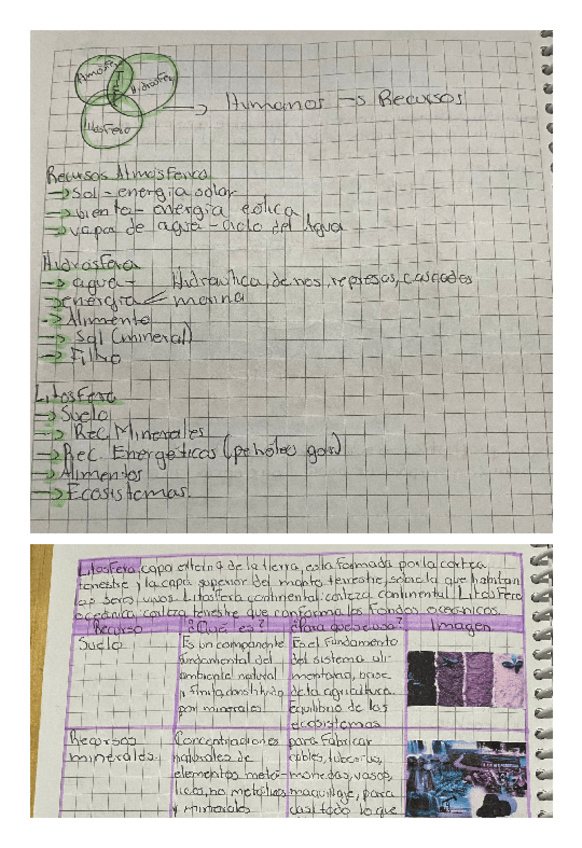 Atmosfera
Hidrosfera
Litosfera
Humanos → Recursos
Recursos Atmosferica
→ Sol - energia solar
→ biento - energia eólica
→ vapor de agua - ciclo del Agua
Hidrosfera
→ agua - Hidraulica, de rios, represas, cascadas
→ energia < marina
→ Alimento
→ Sal (mineral)
→ Filtro
Litosfera
→ Suelo
→ Rec. Minerales
→ Rec. Energéticos (petróleo gas)
→ Alimentos
→ Ecosistemas.
Litosfera, capa externa de la tierra, esta formada por la corteza
terrestre y la capa superior del manto terrestre, sobre la que habitan
los seres vivos. Litosfera continental: corteza continental. Litosfera
oceánica: corteza terrestre que conforma los fondos oceánicos.
Recurso ¿Qué es? ¿Para que se usa? Imagen
Suelo
Es un componente
fundamental del
ambiente natural
y constituido
por minerales
Es el fundamento
del sistema ali-
mentario, base
de la agricultura.
Equilibrio de los
ecosistemas
Recursos
minerales.
Concentraciones
naturales de
elementos metá-
licos, no metálicos
y minerales
para fabricar
cables, tuberias,
monedas, vasos,
maquillaje, para
casi todo lo que